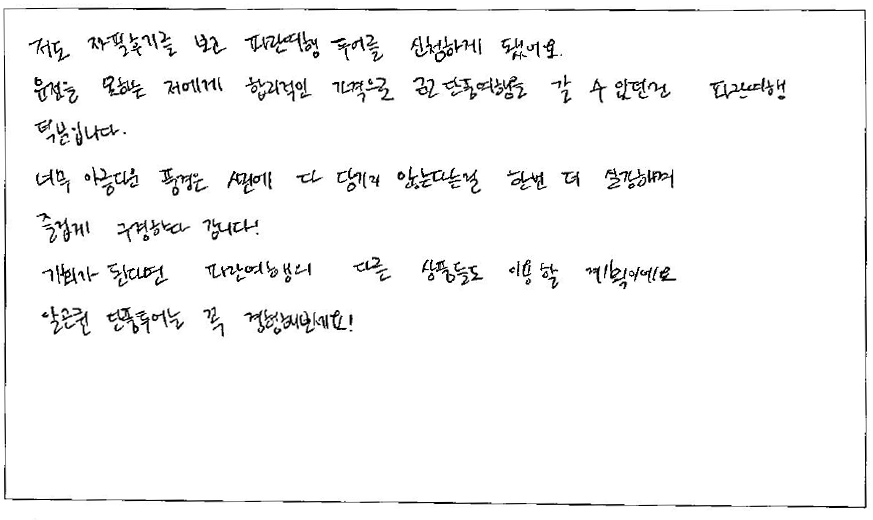 저도 자필후기를 보고 파란여행 투어를 신청하게 됐어요.
운전을 못하는 저에게 합리적인 가격으로 단풍여행을 갈 수 있던건 파란여행
덕분입니다.
너무 아름다운 풍경은 사진에 다 담기지 않는다는걸 한번 더 실감하며
즐겁게 구경하다 갑니다!
기회가 된다면 파란여행의 다른 상품들도 이용할 계획이에요
알곤퀸 단풍투어는 꼭 경험해보세요!